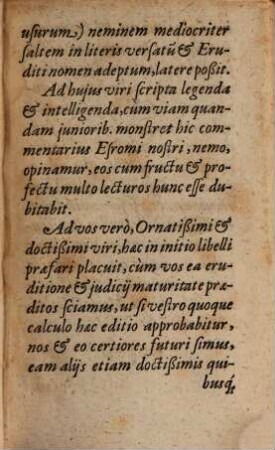 usurum) neminem mediocriter
saltem in literis versatũ & Eru-
diti nomen adeptum, latere poßit.
Ad hujus viri scripta legenda
& intelligenda, cùm viam quan-
dam juniorib. monstret hic com-
mentarius Esromi nostri, nemo,
opinamur, eos cum fructu & pro-
fectu multo lecturos hunc esse du-
bitabit.
Ad vos verò, Ornatißimi &
doctißimi viri, hæc in initio libelli
præfari placuit, cùm vos ea eru-
ditione & judicij maturitate præ-
ditos sciamus, ut si vestro quoque
calculo hæc editio approbabitur,
nos & eo certiores futuri simus,
eam alijs etiam doctißimis qui-
busq́;